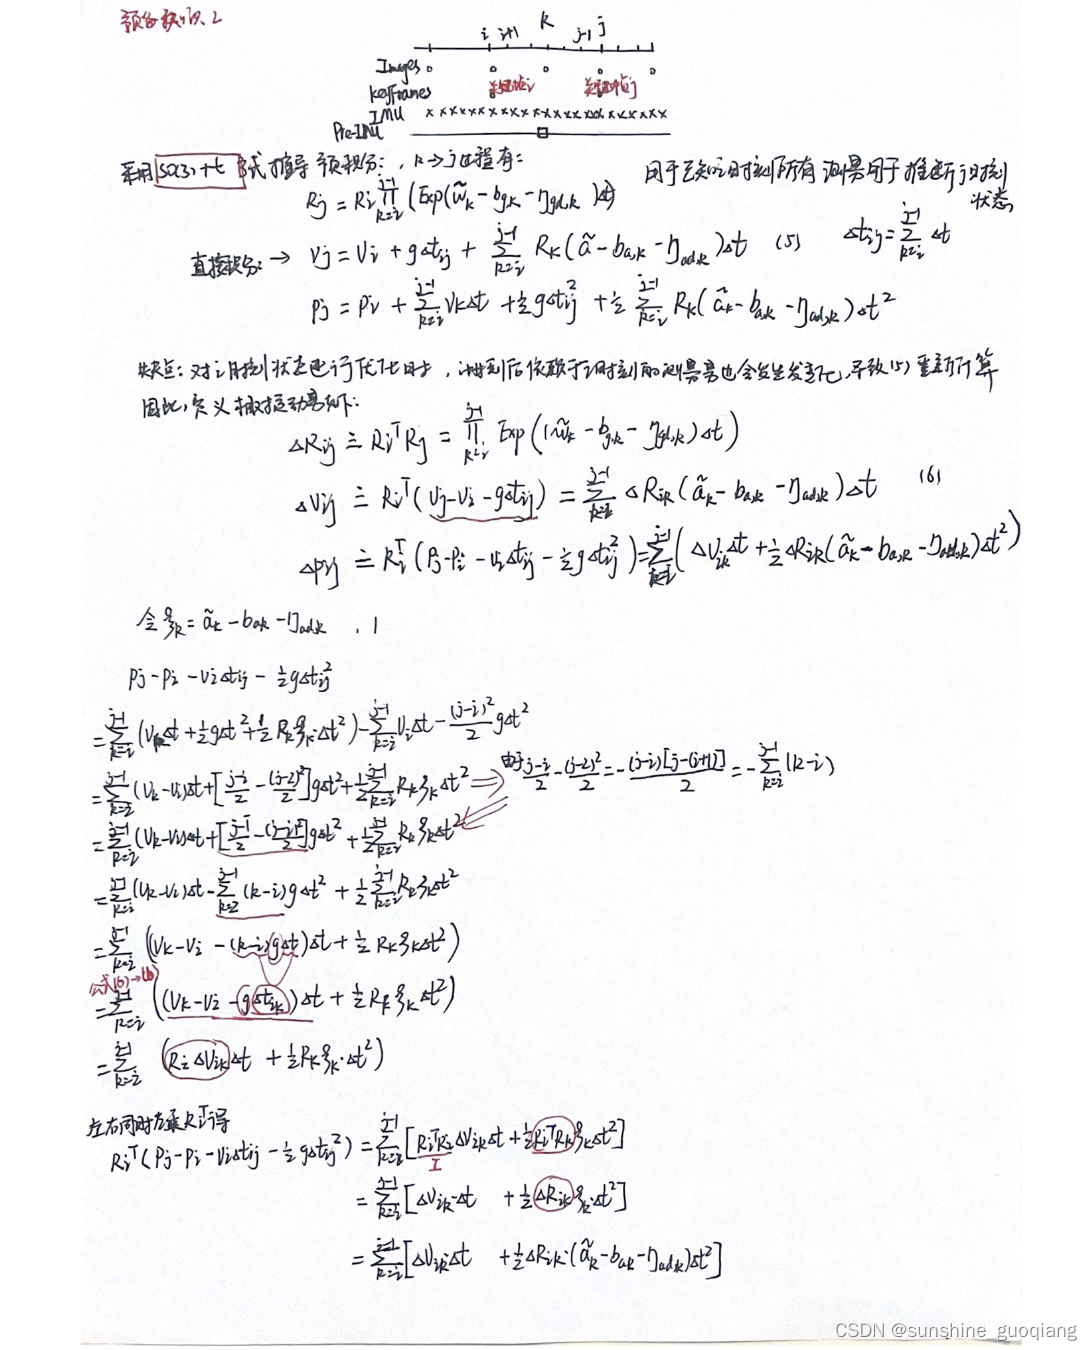 预备知识.2
i i+1 k j-1 j
Images
关键帧i 关键帧j
Keyframes
IMU ××××××××××××××××××××××
Pre-IMU
采用 SO(3)+t 形式推导预积分:, k→j过程有:
用于已知i时刻所有测量用于推断j时刻
状态
Rj = Ri ∏_{k=i}^{j-1} (Exp(ω̃k - bg,k - ηgd,k)Δt)
直接积分: → Vj = Vi + gΔtij + Σ_{k=i}^{j-1} Rk(ã - ba,k - ηad,k)Δt (5) Δtij = Σ_{k=i}^{j-1} Δt
Pj = Pi + Σ_{k=i}^{j-1} VkΔt + ½gΔtij² + ½ Σ_{k=i}^{j-1} Rk(ãk - ba,k - ηad,k)Δt²
缺点: 对i时刻状态进行优化时, 后依赖于i时刻的测量量也会发生变化, 导致(5)重新计算
因此, 定义相对运动量如下:
ΔRij ≐ RiᵀRj = ∏_{k=i}^{j-1} Exp((ω̃k - bg,k - ηgd,k)Δt)
ΔVij ≐ Riᵀ(Vj - Vi - gΔtij) = Σ_{k=i}^{j-1} ΔRik(ãk - ba,k - ηad,k)Δt (6)
Δpij ≐ Riᵀ(Pj - Pi - viΔtij - ½gΔtij²) = Σ_{k=i}^{j-1} (ΔVikΔt + ½ΔRik(ãk - ba,k - ηad,k)Δt²)
令ξk = ãk - bak - ηad,k , 1
Pj - Pi - viΔtij - ½gΔtij²
= Σ_{k=i}^{j-1} (VkΔt + ½gΔt² + ½RkξkΔt²) - Σ_{k=i}^{j-1} ViΔt - (j-i)²/2 gΔt²
= Σ_{k=i}^{j-1} (Vk - Vi)Δt + [(j-i)/2 - (j-i)²/2]gΔt² + ½Σ_{k=i}^{j-1} RkξkΔt² ⇒ 由于 (j-i)/2 - (j-i)²/2 = -(j-i)[j-(i+1)]/2 = -Σ_{k=i}^{j-1}(k-i)
= Σ_{k=i}^{j-1} (Vk - Vi)Δt + [(j-i)/2 - (j-i)²/2]gΔt² + ½Σ_{k=i}^{j-1} RkξkΔt²
= Σ_{k=i}^{j-1} (Vk - Vi)Δt - Σ_{k=i}^{j-1} (k-i)gΔt² + ½Σ_{k=i}^{j-1} RkξkΔt²
= Σ_{k=i}^{j-1} ((Vk - Vi - (k-i)gΔt)Δt + ½RkξkΔt²)
公式(6)→(6)
= Σ_{k=i}^{j-1} ((Vk - Vi - gΔtik)Δt + ½RkξkΔt²)
= Σ_{k=i}^{j-1} (RiΔVikΔt + ½Rkξk·Δt²)
左右同时左乘Riᵀ得
Riᵀ(Pj - Pi - ViΔtij - ½gΔtij²) = Σ_{k=i}^{j-1} [RiᵀRiΔVikΔt + ½RiᵀRkξkΔt²]
I
= Σ_{k=i}^{j-1} [ΔVik·Δt + ½ΔRikξk·Δt²]
= Σ_{k=i}^{j-1} [ΔVikΔt + ½ΔRik·(ãk - bak - ηad,k)Δt²]
CSDN @sunshine_guoqiang